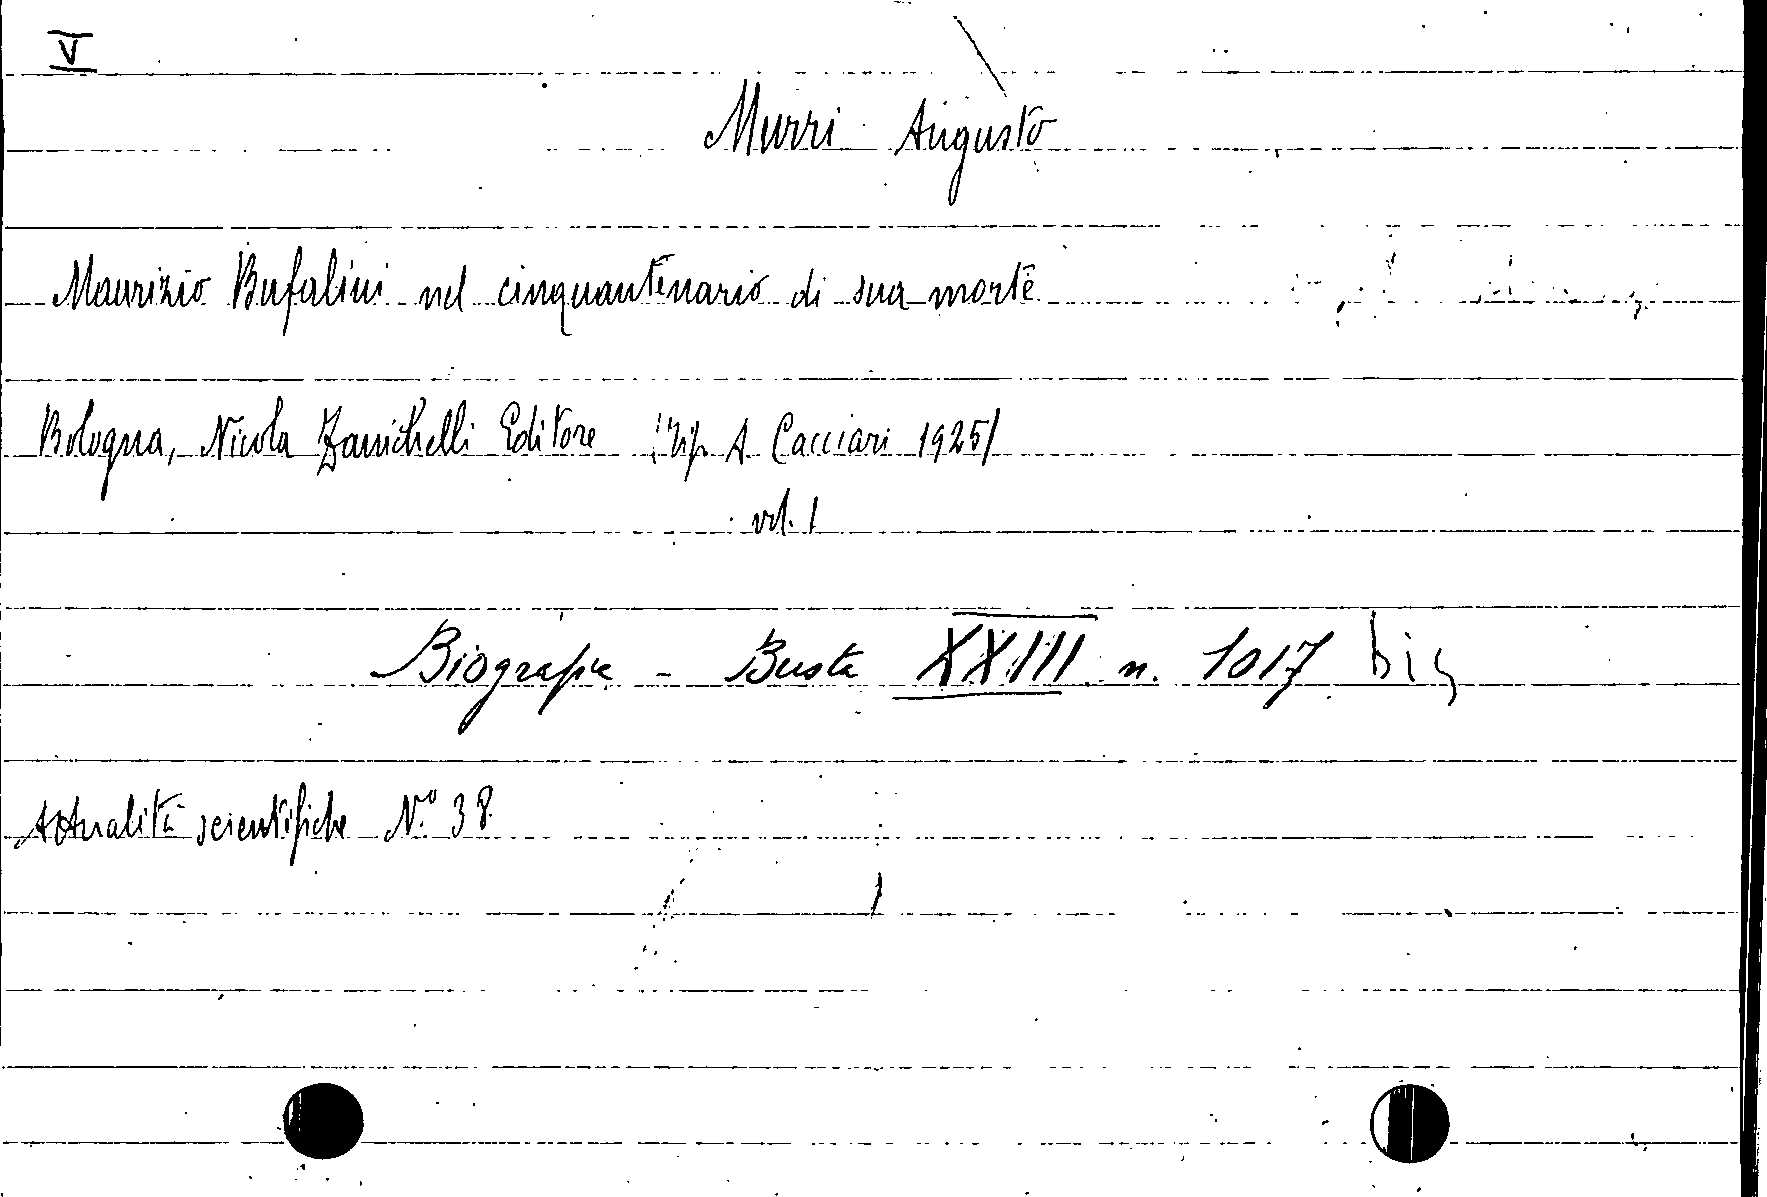 V
Murri Augusto
Maurizio Bufalini nel cinquantenario di sua morte
Bologna, Nicola Zanichelli Editore (Tip. A. Cacciari 1925)
vol. 1
Biografie - Busta XXIII n. 1017 bis
Attualità scientifiche N.° 38